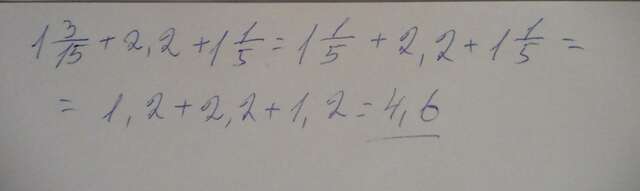 1 3/15 + 2,2 + 1 1/5 = 1 1/5 + 2,2 + 1 1/5 =
= 1,2 + 2,2 + 1,2 = 4,6